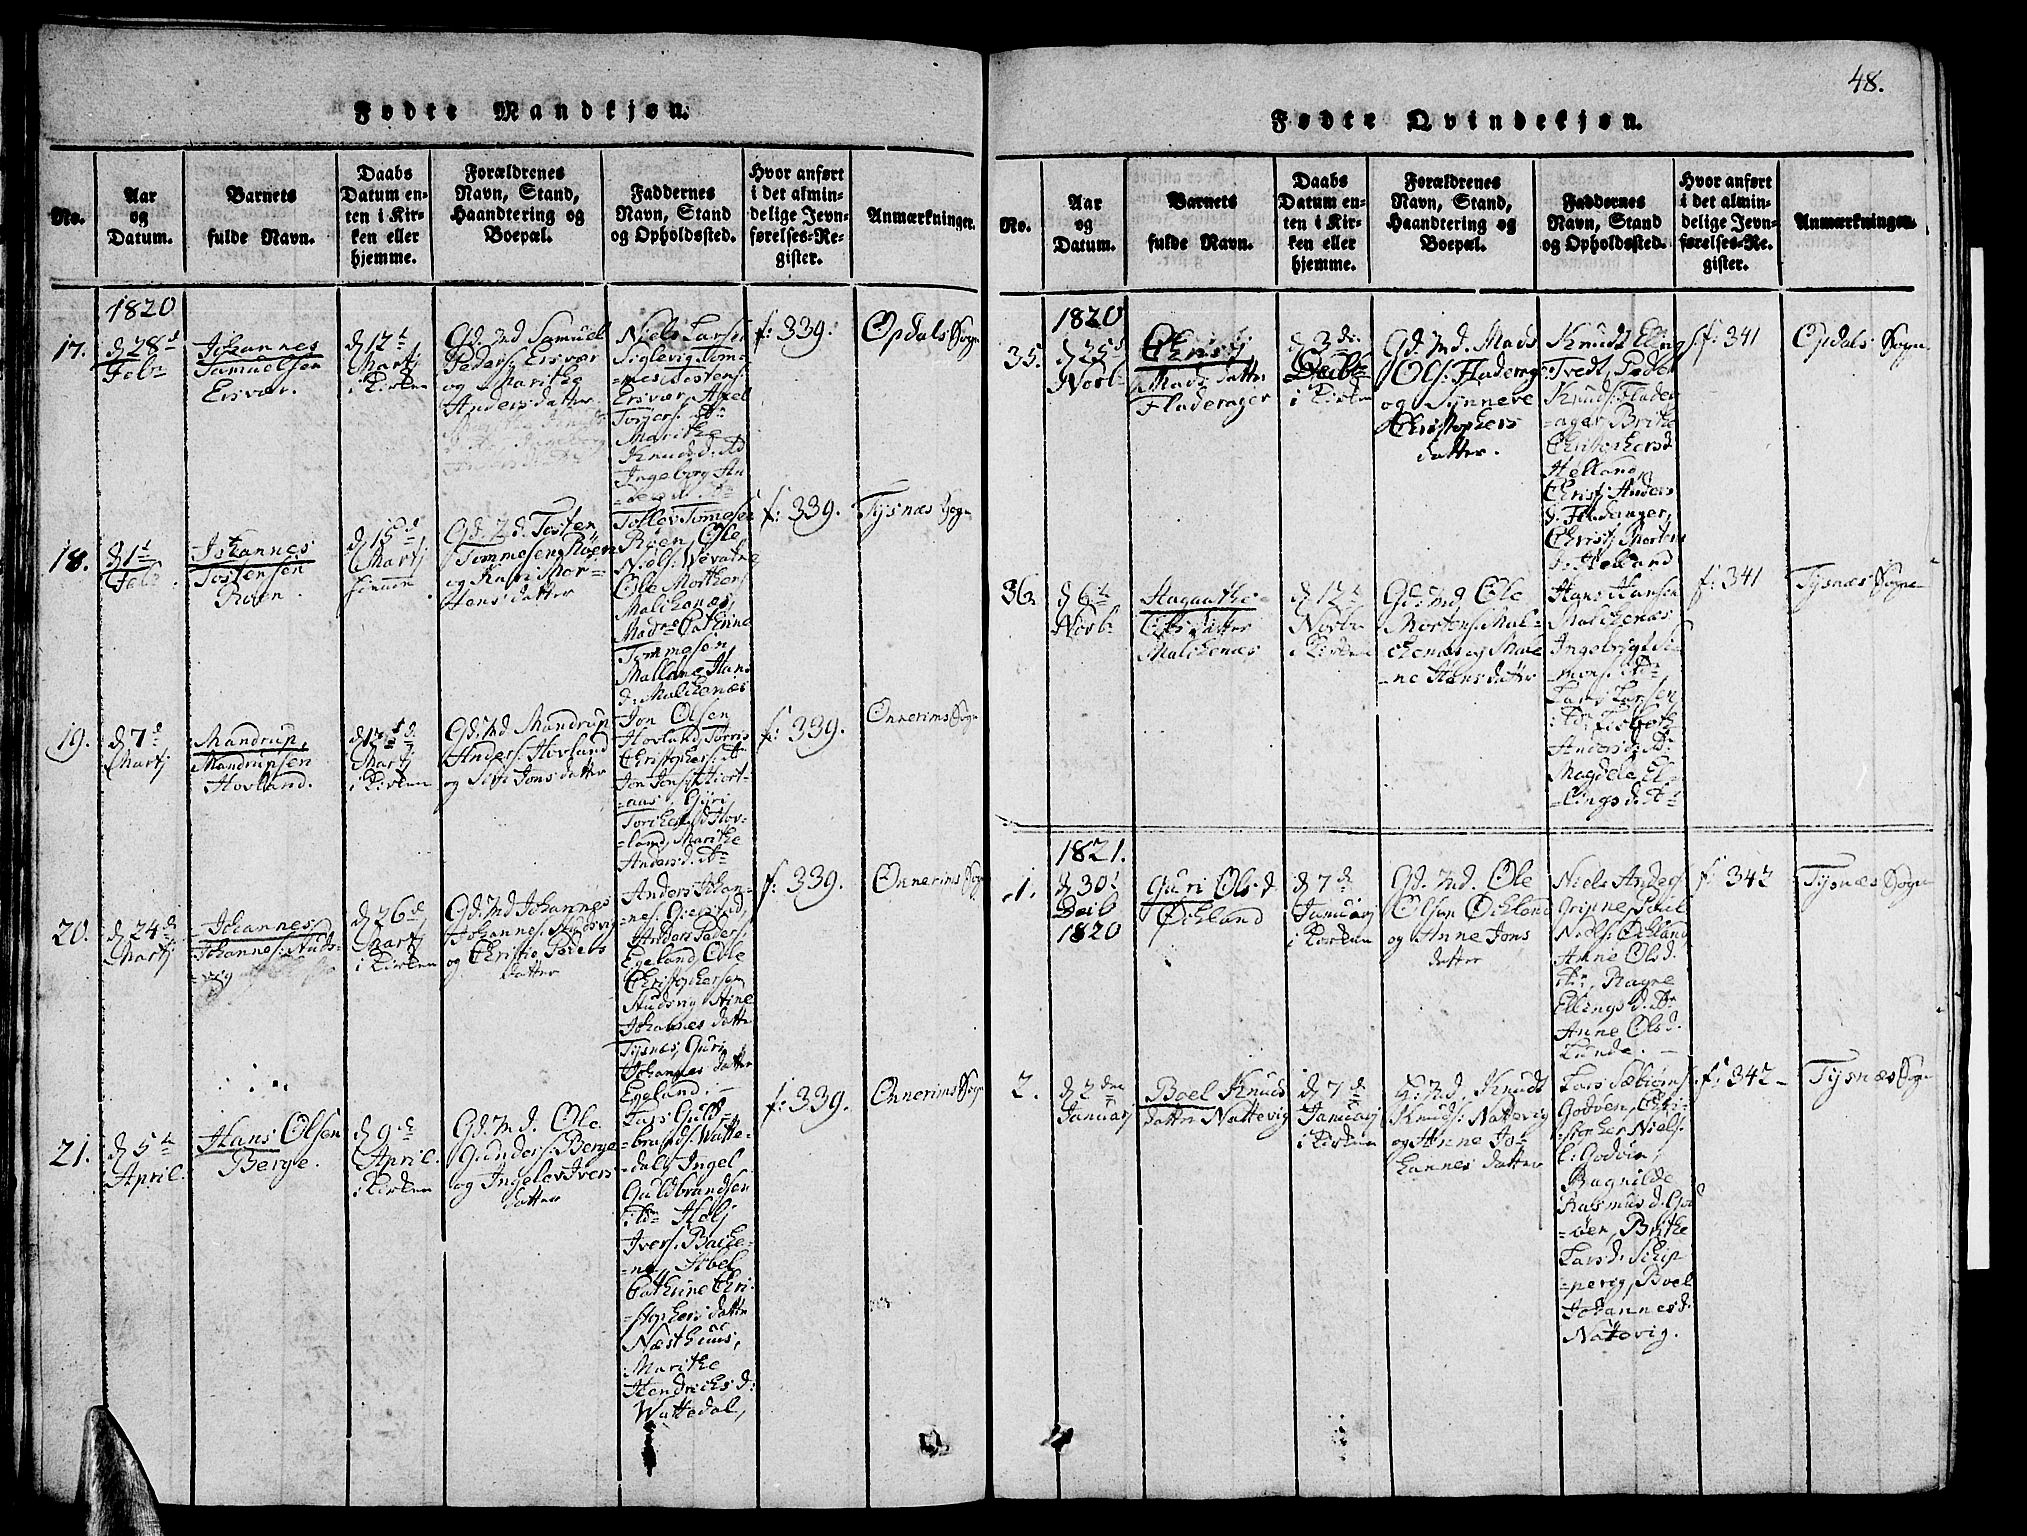 Fødte Mandkjøn.
No.
Aar
og
Datum.
Barnets
fulde Navn.
Daabs
Datum en-
ten i Kir-
ken eller
hjemme.
Forældrenes
Navn, Stand,
Haandtering og
Boepæl.
Faddernes
Navn, Stand
og Opholdssted.
Hvor anført
i det almin-
delige Jevn-
førelses-Re-
gister.
Anmærkninger.
1820
17.
d 28d
Febr
Johannes
Samuelsen
Ersvær.
d 12t
Martj
i Kirken
Gd. Md Samuel
Peders. Ersvær
og Marithe
Anders datter.
Niels Larsen
Siglevig, Tom-
mes Tostens.
Ersvær, Axel
Torgers. Dr
Marithe
Knudsd. Ad
Ingeborg An-
f: 339.
Opdals Sogn
18.
d 1t
Febr.
Johannes
Tostensen
Roen.
d 15d
Martj
Gd. Md. Tosten
Tommesen Roen
og Kari Mor-
tens datter
Tollev Tommesen
Roen, Ole
Niels. Wevatne
Ole Mortens.
Malkenæs,
Madme Cathrine
Tommesen,
Mallene Hans
d. Malkenæs
f: 339.
Tysnæs Sogn
19.
d 7d
Martj
Mandrup,
Mandrupsen
Hovland.
Martj
i Kirken
Gd. Md Mandrup
Anders. Hovland
og Siri Jons datter
Jon Olsen
Hovland, Torris
Christophers. A
Jon Jons. Hiort-
-aas, Guri
Torchels d Hov-
-land, Marithe
Anders d. Dr
f: 339.
Onnerims Sogn
20.
d 24de
Martj
Johannes
Johannes. Huds-
-vig
d 26de
Martj
i Kirken
Gd. Md Johannes
Johannes. Hudsvig
og Christie Peders
datter
Anders Johan-
-nes. Gierstad,
Anders Peders.
Egeland, Ole
Christophersen
Hudsvig, Stine
Johannes datter
Tysnæs, Guri
Johannes datter
Egeland.
f: 339.
Onnerims Sogn
21.
d 5te
April.
Hans Olsen
Berge.
d 9de
April.
i Kirken
Gd. Md. Ole
Gunders. Berge
og Ingelev Ivers
datter
Lars Guld-
-brands. Watte-
-dal, Ingel
Guldbrandsen
ibm Helj
Ivers. Bache-
-ne, Abel
Cathrine Chri-
-stophers datter
Næstheus,
Marithe
Hendrichs d.
Wattedal,
f: 339.
Onnerims Sogn
48.
Fødte Qvindekjøn.
No.
Aar
og
Datum.
Barnets
fulde Navn.
Daabs
Datum en-
ten i Kir-
ken eller
hjemme.
Forældrenes
Navn, Stand,
Haandtering og
Boepæl.
Faddernes
Navn, Stand
og Opholdssted.
Hvor anført
i det almin-
delige Jevn-
førelses-Re-
gister.
Anmærkninger.
1820
35.
d 25d
Novb
Christj
Mads datter
Fladerager
d 3de
Decbr
i Kirken
Gd. Md. Mads
Ols. Fladerager
og Synneve
Christophers
datter.
Knudt Elling
Tvedt, Peder
Knuds. Flader-
-ager, Brithe
Christophersd
Helland,
Christj Anders
d. Fladerager,
Christj Mortens
d. Helland
f: 341
Opdals Sogn
36.
d 6te
Novb
Magathe
Ols datter
Malkenæs
d 12te
Novbr
i Kirken
Gd. Md Ole
Mortens. Mal-
chenæs og Male-
-ne Hans datter
Hans Hansen
Malchenæs
Ingebrigt Si-
-mons. Dr
Lars Larsen
ibm Lisbeth
Anders d. Dr
Magdele El-
-lings d. Dr
f: 341
Tysnæs Sogn
1821.
1.
d 30t
Decb
1820
Guri Ols d
Øchland
d 7de
Januarj
i Kirken
Gd. Md. Ole
Olsen Øchland
og Anne Jons
datter
Niels Anders
Gripne, Poul
Niels. Øchland
Anne Olsd.
ibi, Ragne
Ellings d. Dr
Anne Ols d.
Lunde.
f: 342
Tysnæs Sogn
2.
d 2den
Januarj
Boel Knuds
datter Nattevig
d 7de
Januarj
i Kirken
G. Md. Knudt
Knuds. Nattevig
og Anne Jo-
hannes datter
Lars Sæbiøns.
Godøen, Chri-
-stopher Niels.
l. Godøen,
Bagnilde
Rasmus d. God-
-øen, Brithe
Lars d. Schip-
-pevig, Boel
Johannes d.
Nattevig.
f: 342
Tysnæs Sogn